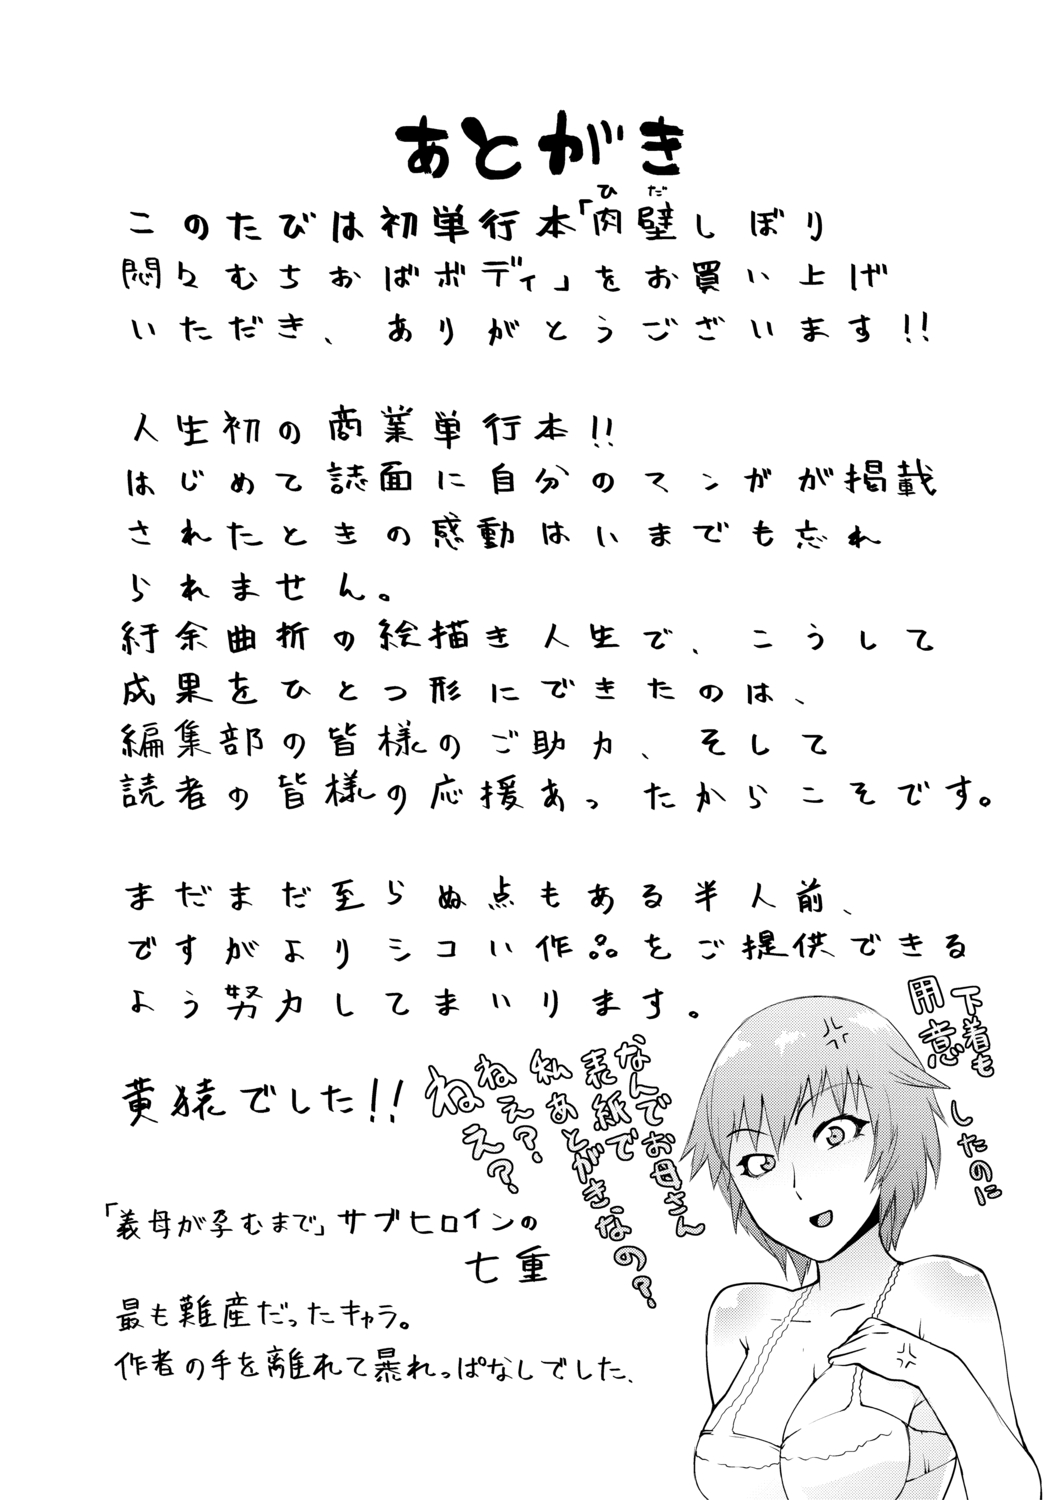 あとがき
このたびは初単行本「肉壁しぼり
ひだ
悶々むちおばボディ」をお買い上げ
いただき、ありがとうございます!!
人生初の商業単行本!!
はじめて誌面に自分のマンガが掲載
されたときの感動はいまでも忘れ
られません。
紆余曲折の絵描き人生で、こうして
成果をひとつ形にできたのは、
編集部の皆様のご助力、そして
読者の皆様の応援あったからこそです。
まだまだ至らぬ点もある半人前、
ですがよりシコい作品をご提供できる
よう努力してまいります。
黄猿でした!!
下着も
用意
したのに
なんでお母さん
表紙で
私あとがきなの?
ねえ?
ねえ?
ね
「義母が孕むまで」サブヒロインの
七重
最も難産だったキャラ。
作者の手を離れて暴れっぱなしでした、